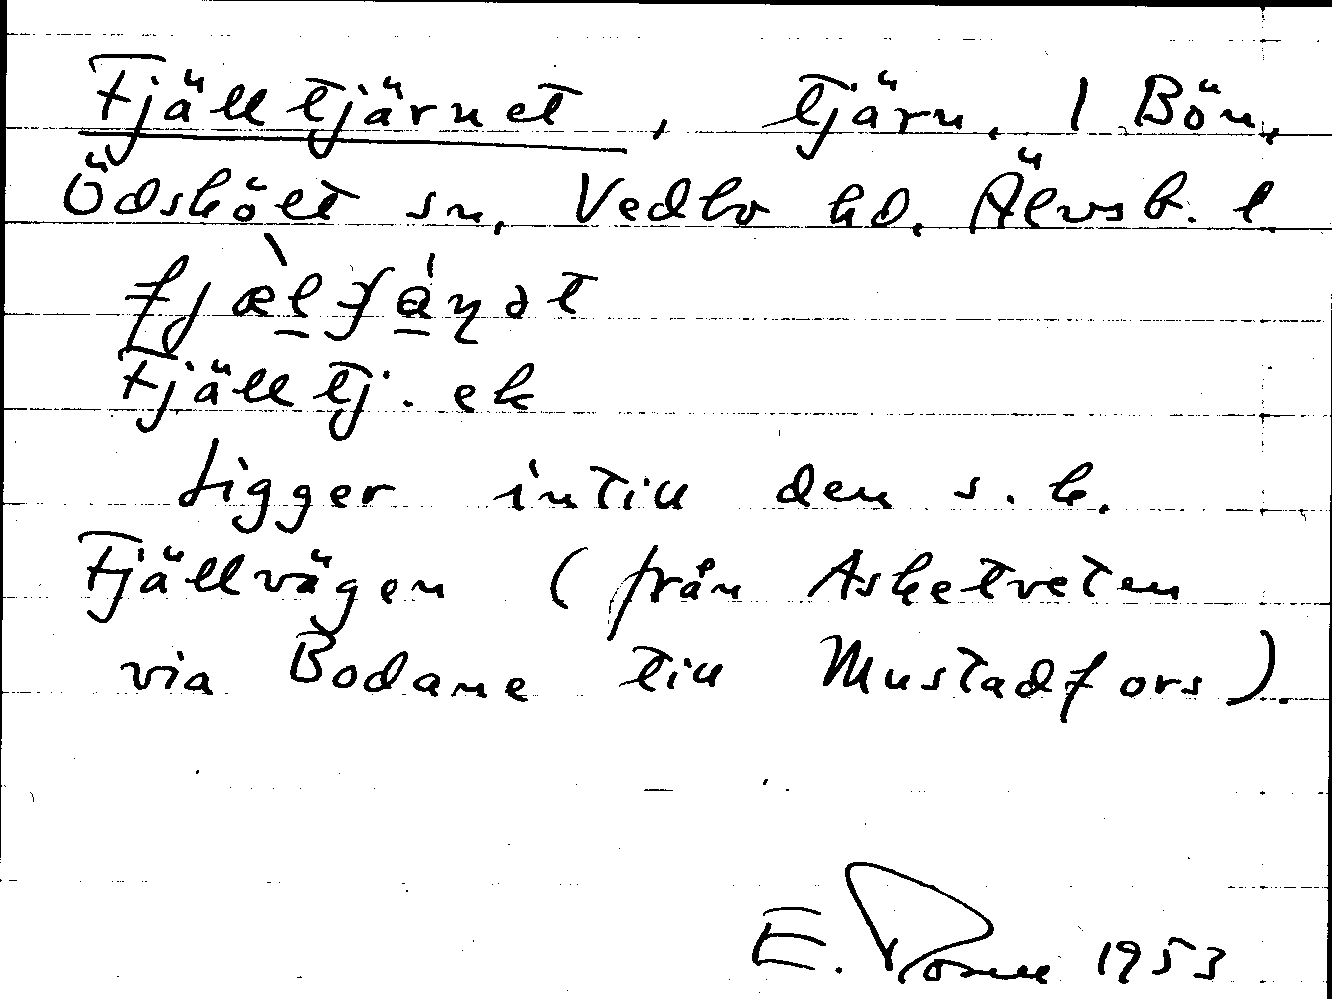 Fjälltjärnet, tjärn. / Bön,
Ödskölt sn, Vedbo hd. Älvsb. l.
Fjälltj. ek
Ligger intill den s.k.
Fjällvägen (från Asketveten
via Bodane till Mustadfors).
E. 1953